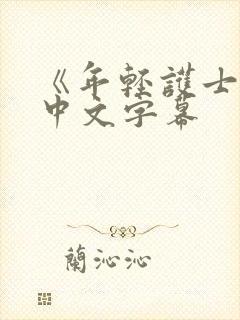 《年輕護士
中文字幕
蘭沁沁